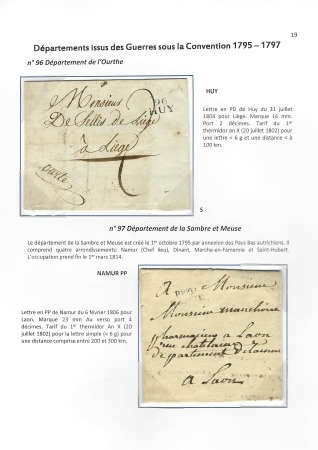 19
Départements issus des Guerres sous la Convention 1795 – 1797
n° 96 Département de l'Ourthe
HUY
Lettre en PD de Huy du 31 juillet
1804 pour Liège. Marque 16 mm.
Port 2 décimes. Tarif du 1er
thermidor an X (20 juillet 1802) pour
une lettre < 6 g et une distance < à
100 km.
Monsieur
96
HUY
De Sélis de Liège
à Liège
S
n° 97 Département de la Sambre et Meuse
Le département de la Sambre et Meuse est créé le 1er octobre 1795 par annexion des Pays Bas autrichiens. Il
comprend quatre arrondissements: Namur (Chef lieu), Dinant, Marche-en-Famenne et Saint-Hubert.
L'occupation prend fin le 1er mars 1814.
NAMUR PP
Lettre en PP de Namur du 6 février 1806 pour
Laon. Marque 23 mm Au verso port 4
décimes. Tarif du 1er thermidor An X (20
juillet 1802) pour la lettre simple (< 6 g) pour
une distance comprise entre 200 et 300 km.
A Monsieur
Monsieur
pharmacien a Laon
rue
departement de
a Laon